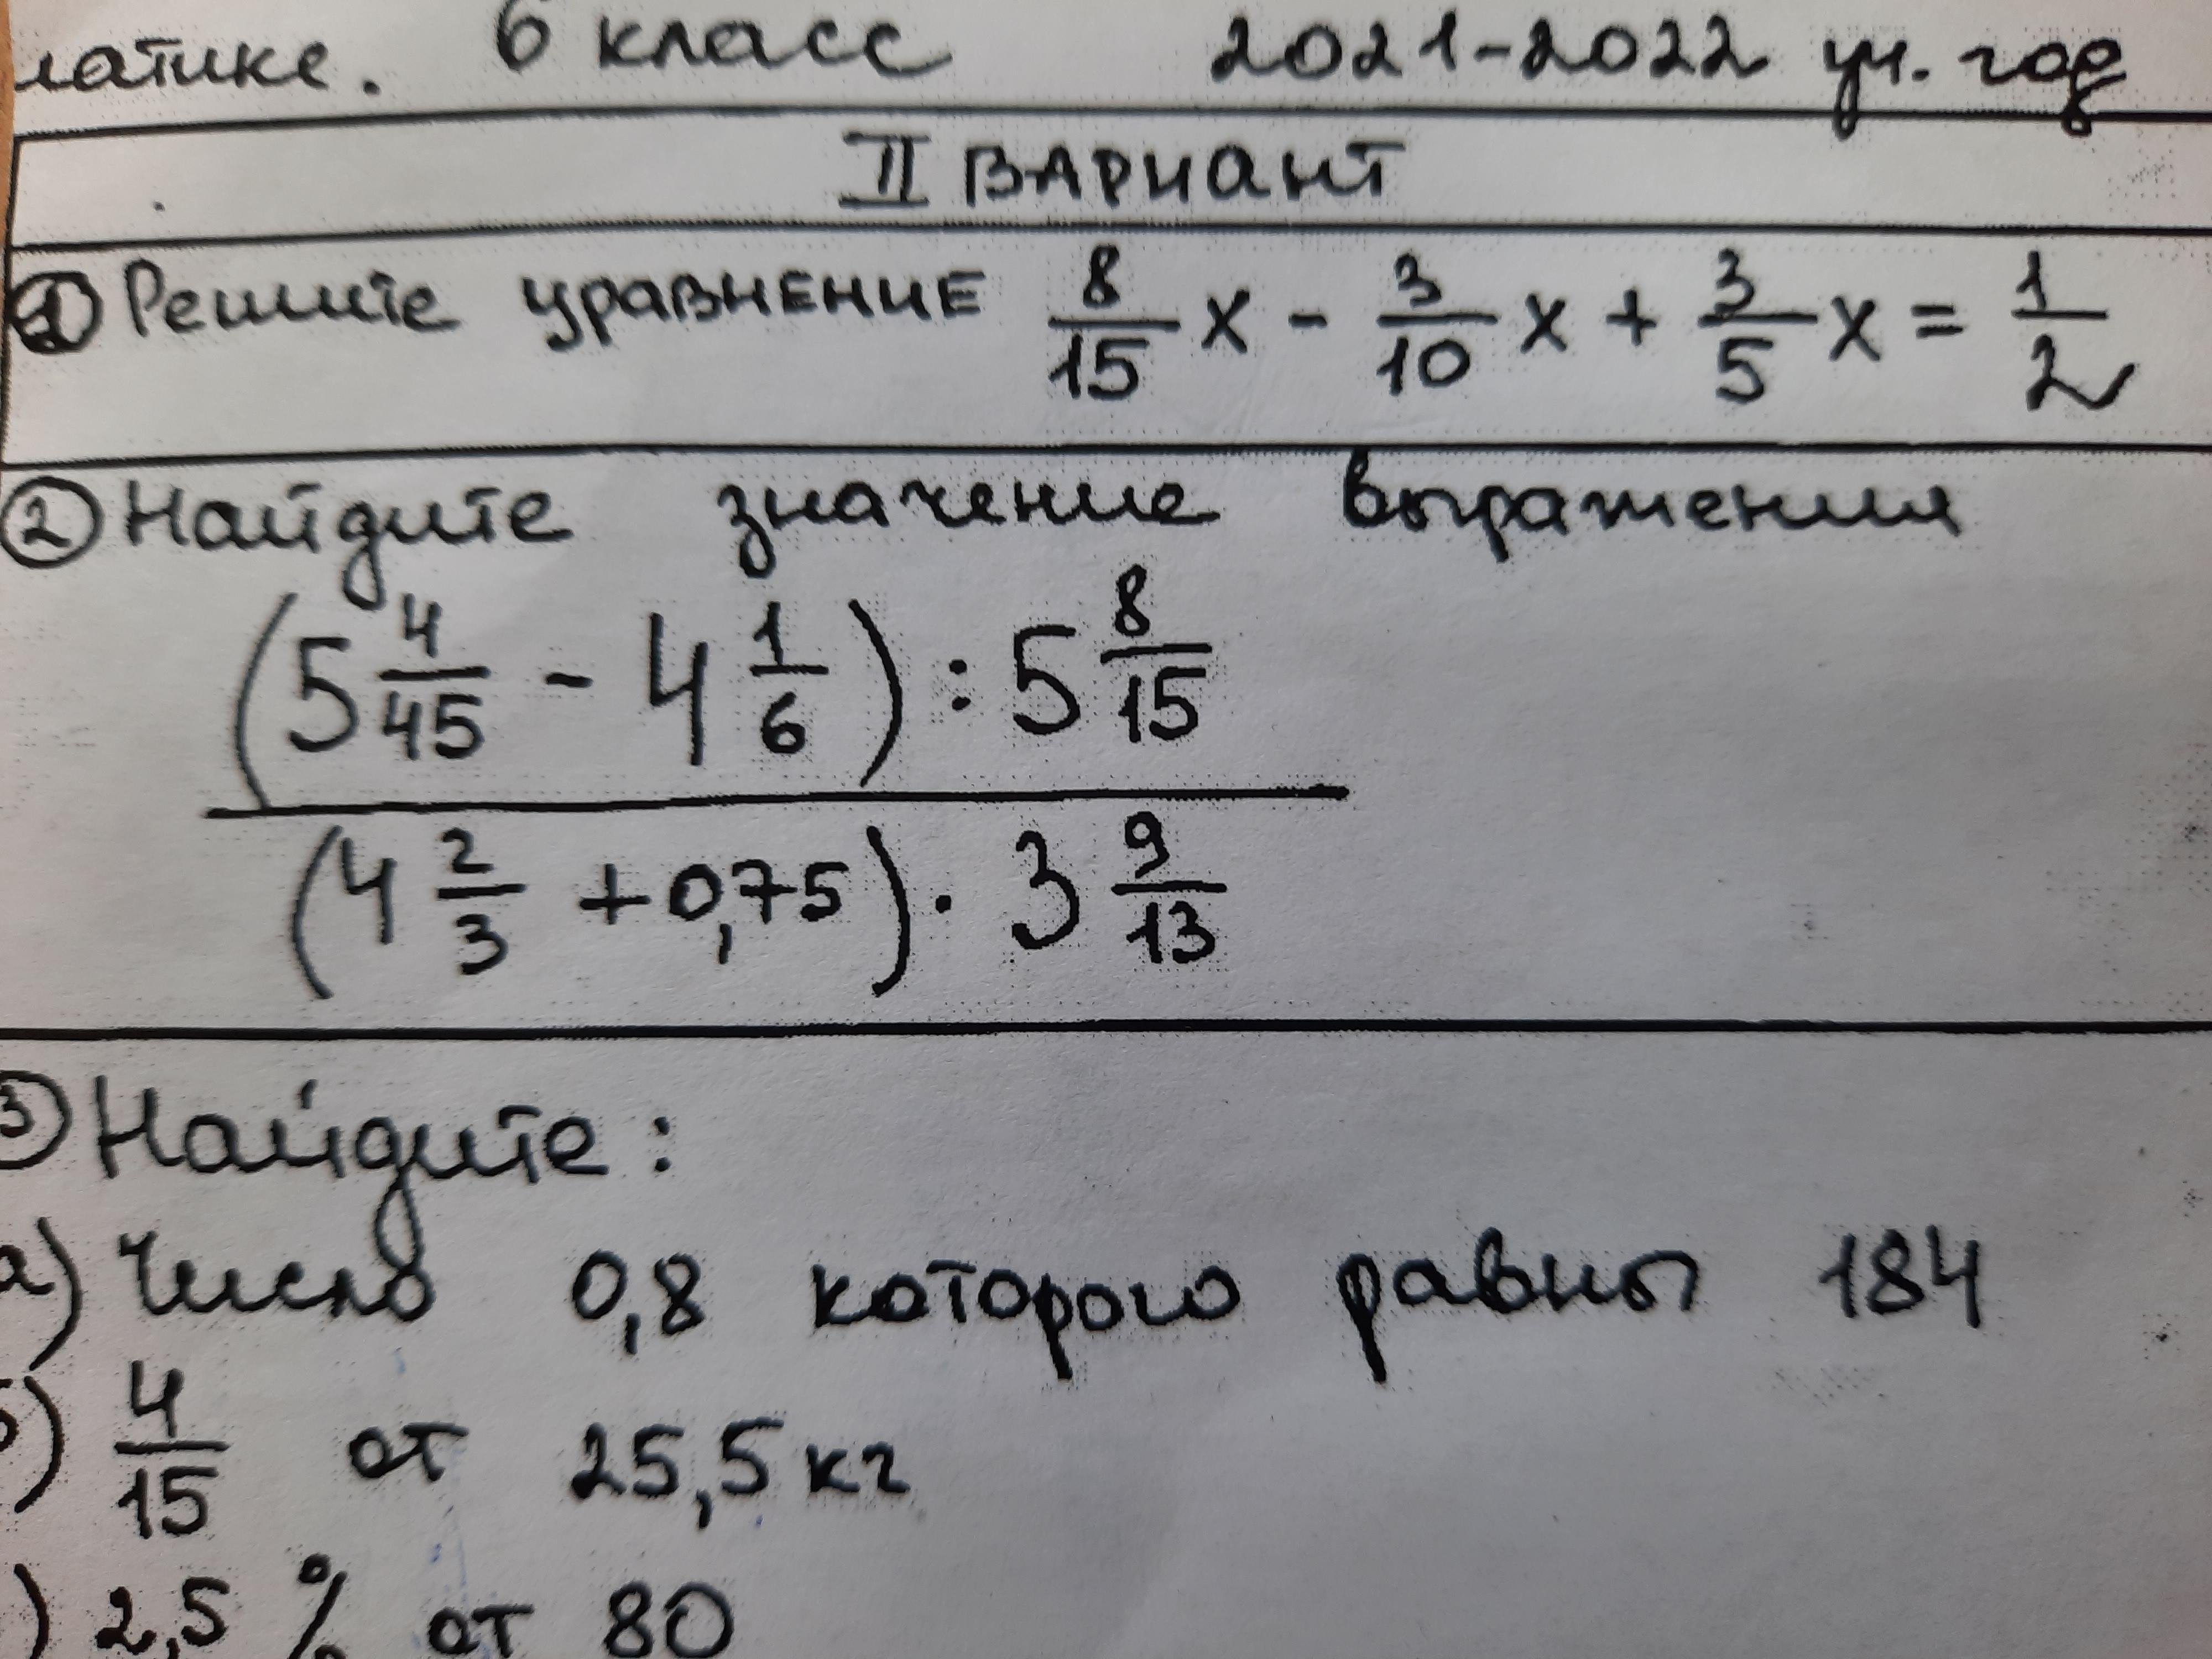 6 класс 2021-2022 уч. год
II ВАРИАНТ
① Решите уравнение 8/15 x - 3/10 x + 3/5 x = 1/2
② Найдите значение выражения
(5 4/45 - 4 1/6) : 5 8/15
(4 2/3 + 0,75) · 3 9/13
③ Найдите:
а) Число 0,8 которого равны 184
б) 4/15 от 25,5 кг
) 2,5 % от 80